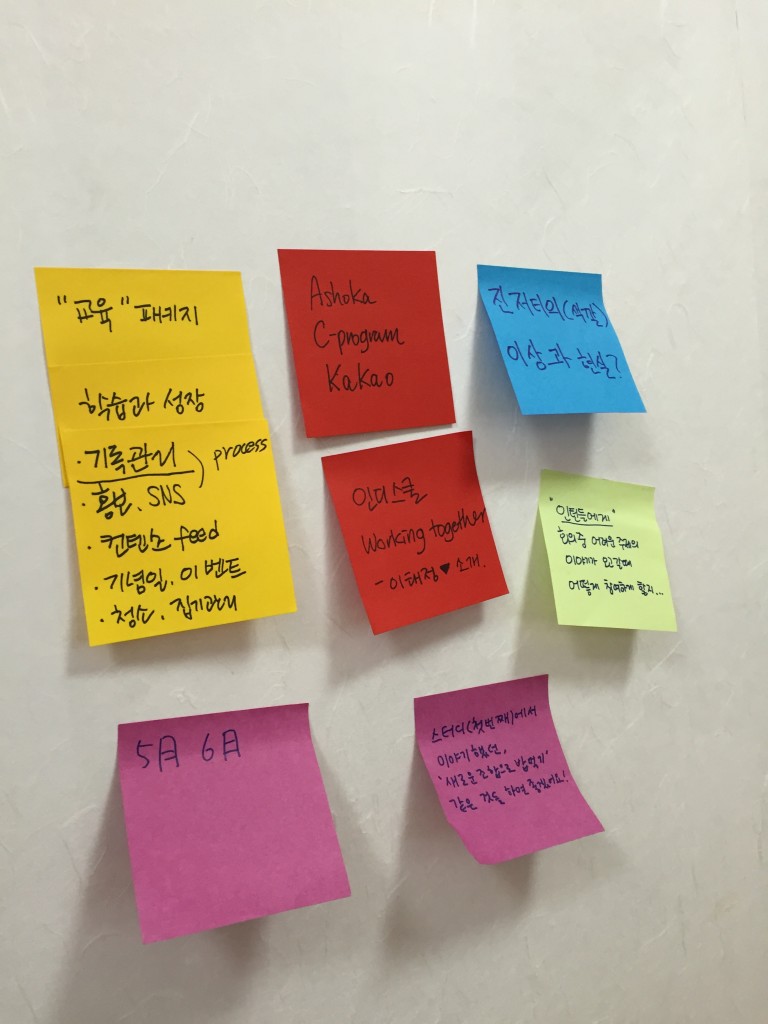 "교육" 패키지
학습과 성장
· 기록관리 ) process
· 홍보. SNS
· 컨텐츠 feed
· 기념일. 이벤트
· 청소. 집기관리
Ashoka
C-program
Kakao
진저티의(색깔)
이상과 현실?
인디스쿨
Working together
- 이태정♥소개.
"인턴들에게"
회의중 어려운 주제의
이야기가 오고갈때
어떻게 참여하게 할지...
5月 6月
스터디(첫번째)에서
이야기했던,
'새로운 조합으로 밥먹기'
같은 것을 하면 좋겠어요!